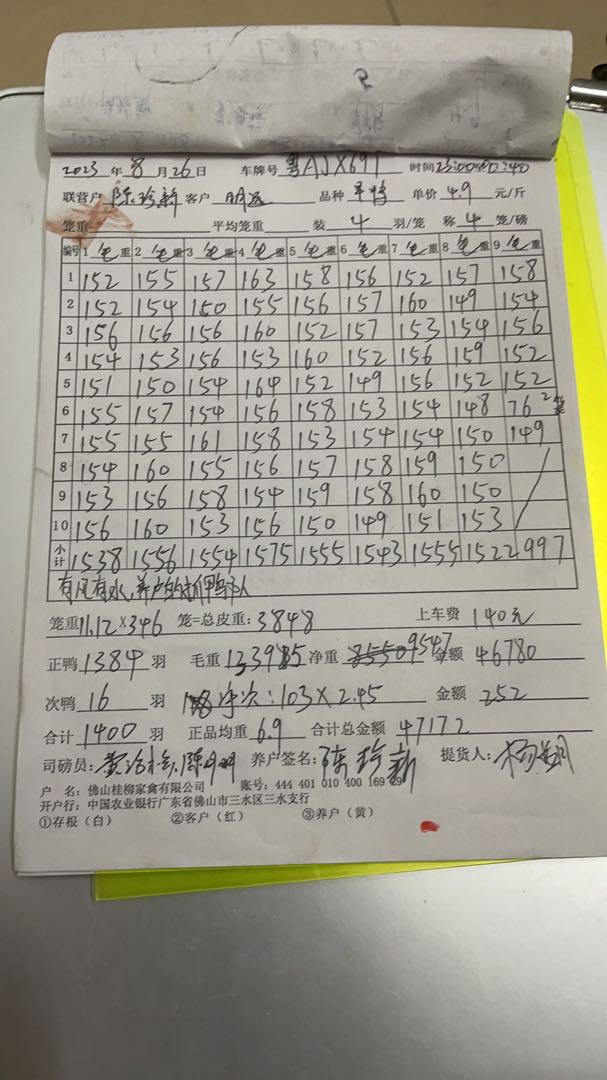 2023 年 8 月 26 日 车牌号 粤AJX691 时间 23:00 40:40
联营户 陈珍新 客户 明 品种 单价 4.9 元/斤
笼重 平均笼重 装 4 羽/笼 称 4 笼/磅
编号 1 毛重 2 毛重 3 毛重 4 毛重 5 毛重 6 毛重 7 毛重 8 毛重 9 毛重
1 152 155 157 163 158 156 152 157 158
2 152 154 150 155 156 157 160 149 154
3 156 156 156 160 152 157 153 154 156
4 154 153 156 153 160 152 156 159 152
5 151 150 154 164 152 149 156 152 152
6 155 157 154 156 158 153 154 148 76 2笼
7 155 155 161 158 153 154 154 150 149
8 154 160 155 156 157 158 159 150
9 153 156 158 154 159 158 160 150
10 156 160 153 156 150 149 151 153
小计 1538 1556 1554 1575 1555 1543 1555 1522 997
有风有水,养户
笼重 11.12×346 笼=总皮重: 3848 上车费 140元
正鸭 1384 羽 毛重 13395 净重 9547 金额 46780
次鸭 16 羽 次: 103×2.45 金额 252
合计 1400 羽 正品均重 6.9 合计总金额 47172
司磅员: 养户签名: 陈珍新 提货人: 杨
户 名: 佛山桂柳家禽有限公司 账号: 444 401 010 400 169 29
开户行: 中国农业银行广东省佛山市三水区三水支行
①存根(白) ②客户(红) ③养户(黄)